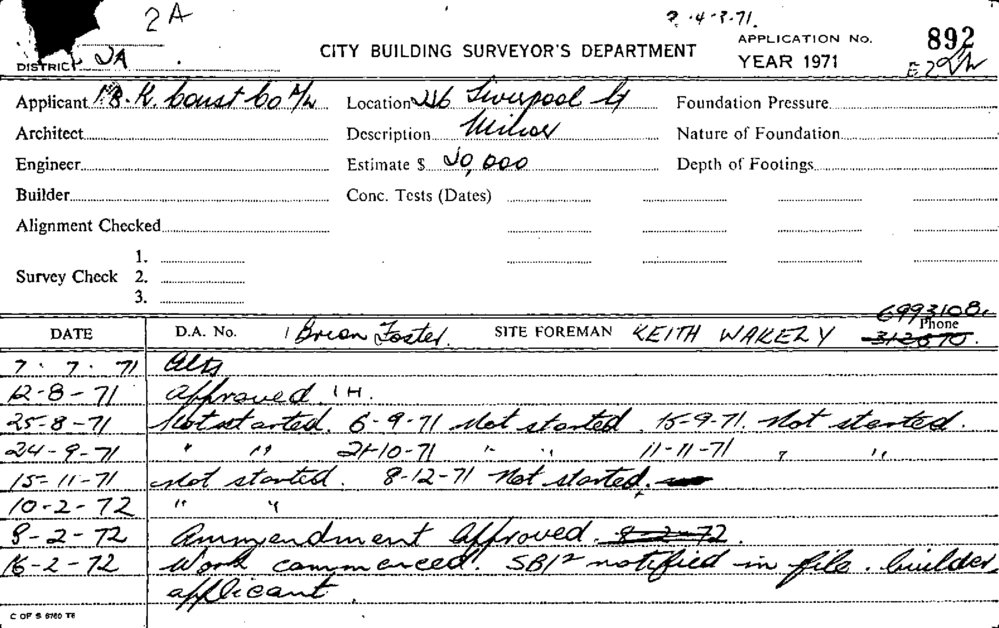 2A
2.4.3.71.
DISTRICT 2A
CITY BUILDING SURVEYOR'S DEPARTMENT
APPLICATION No. 892
YEAR 1971
Applicant Const Co Location Liverpool St Foundation Pressure
Architect Description Nature of Foundation
Engineer Estimate $ 20,000 Depth of Footings
Builder Conc. Tests (Dates)
Alignment Checked
1.
Survey Check 2.
3.
6993108
DATE D.A. No. Brian Foster. SITE FOREMAN KEITH WAKELY Phone
7.7.71 Alts
12-8-71 Approved. IH.
25-8-71 Not started. 6-9-71 Not started. 15-9-71. Not started.
24-9-71 " " 21-10-71 " " 11-11-71 " "
15-11-71 not started. 8-12-71 Not started.
10-2-72 " "
8-2-72 Ammendment Approved. 8-2-72.
16-2-72 Work commenced. SB12 notified in file. builder,
applicant.
C OF S 6760 T6